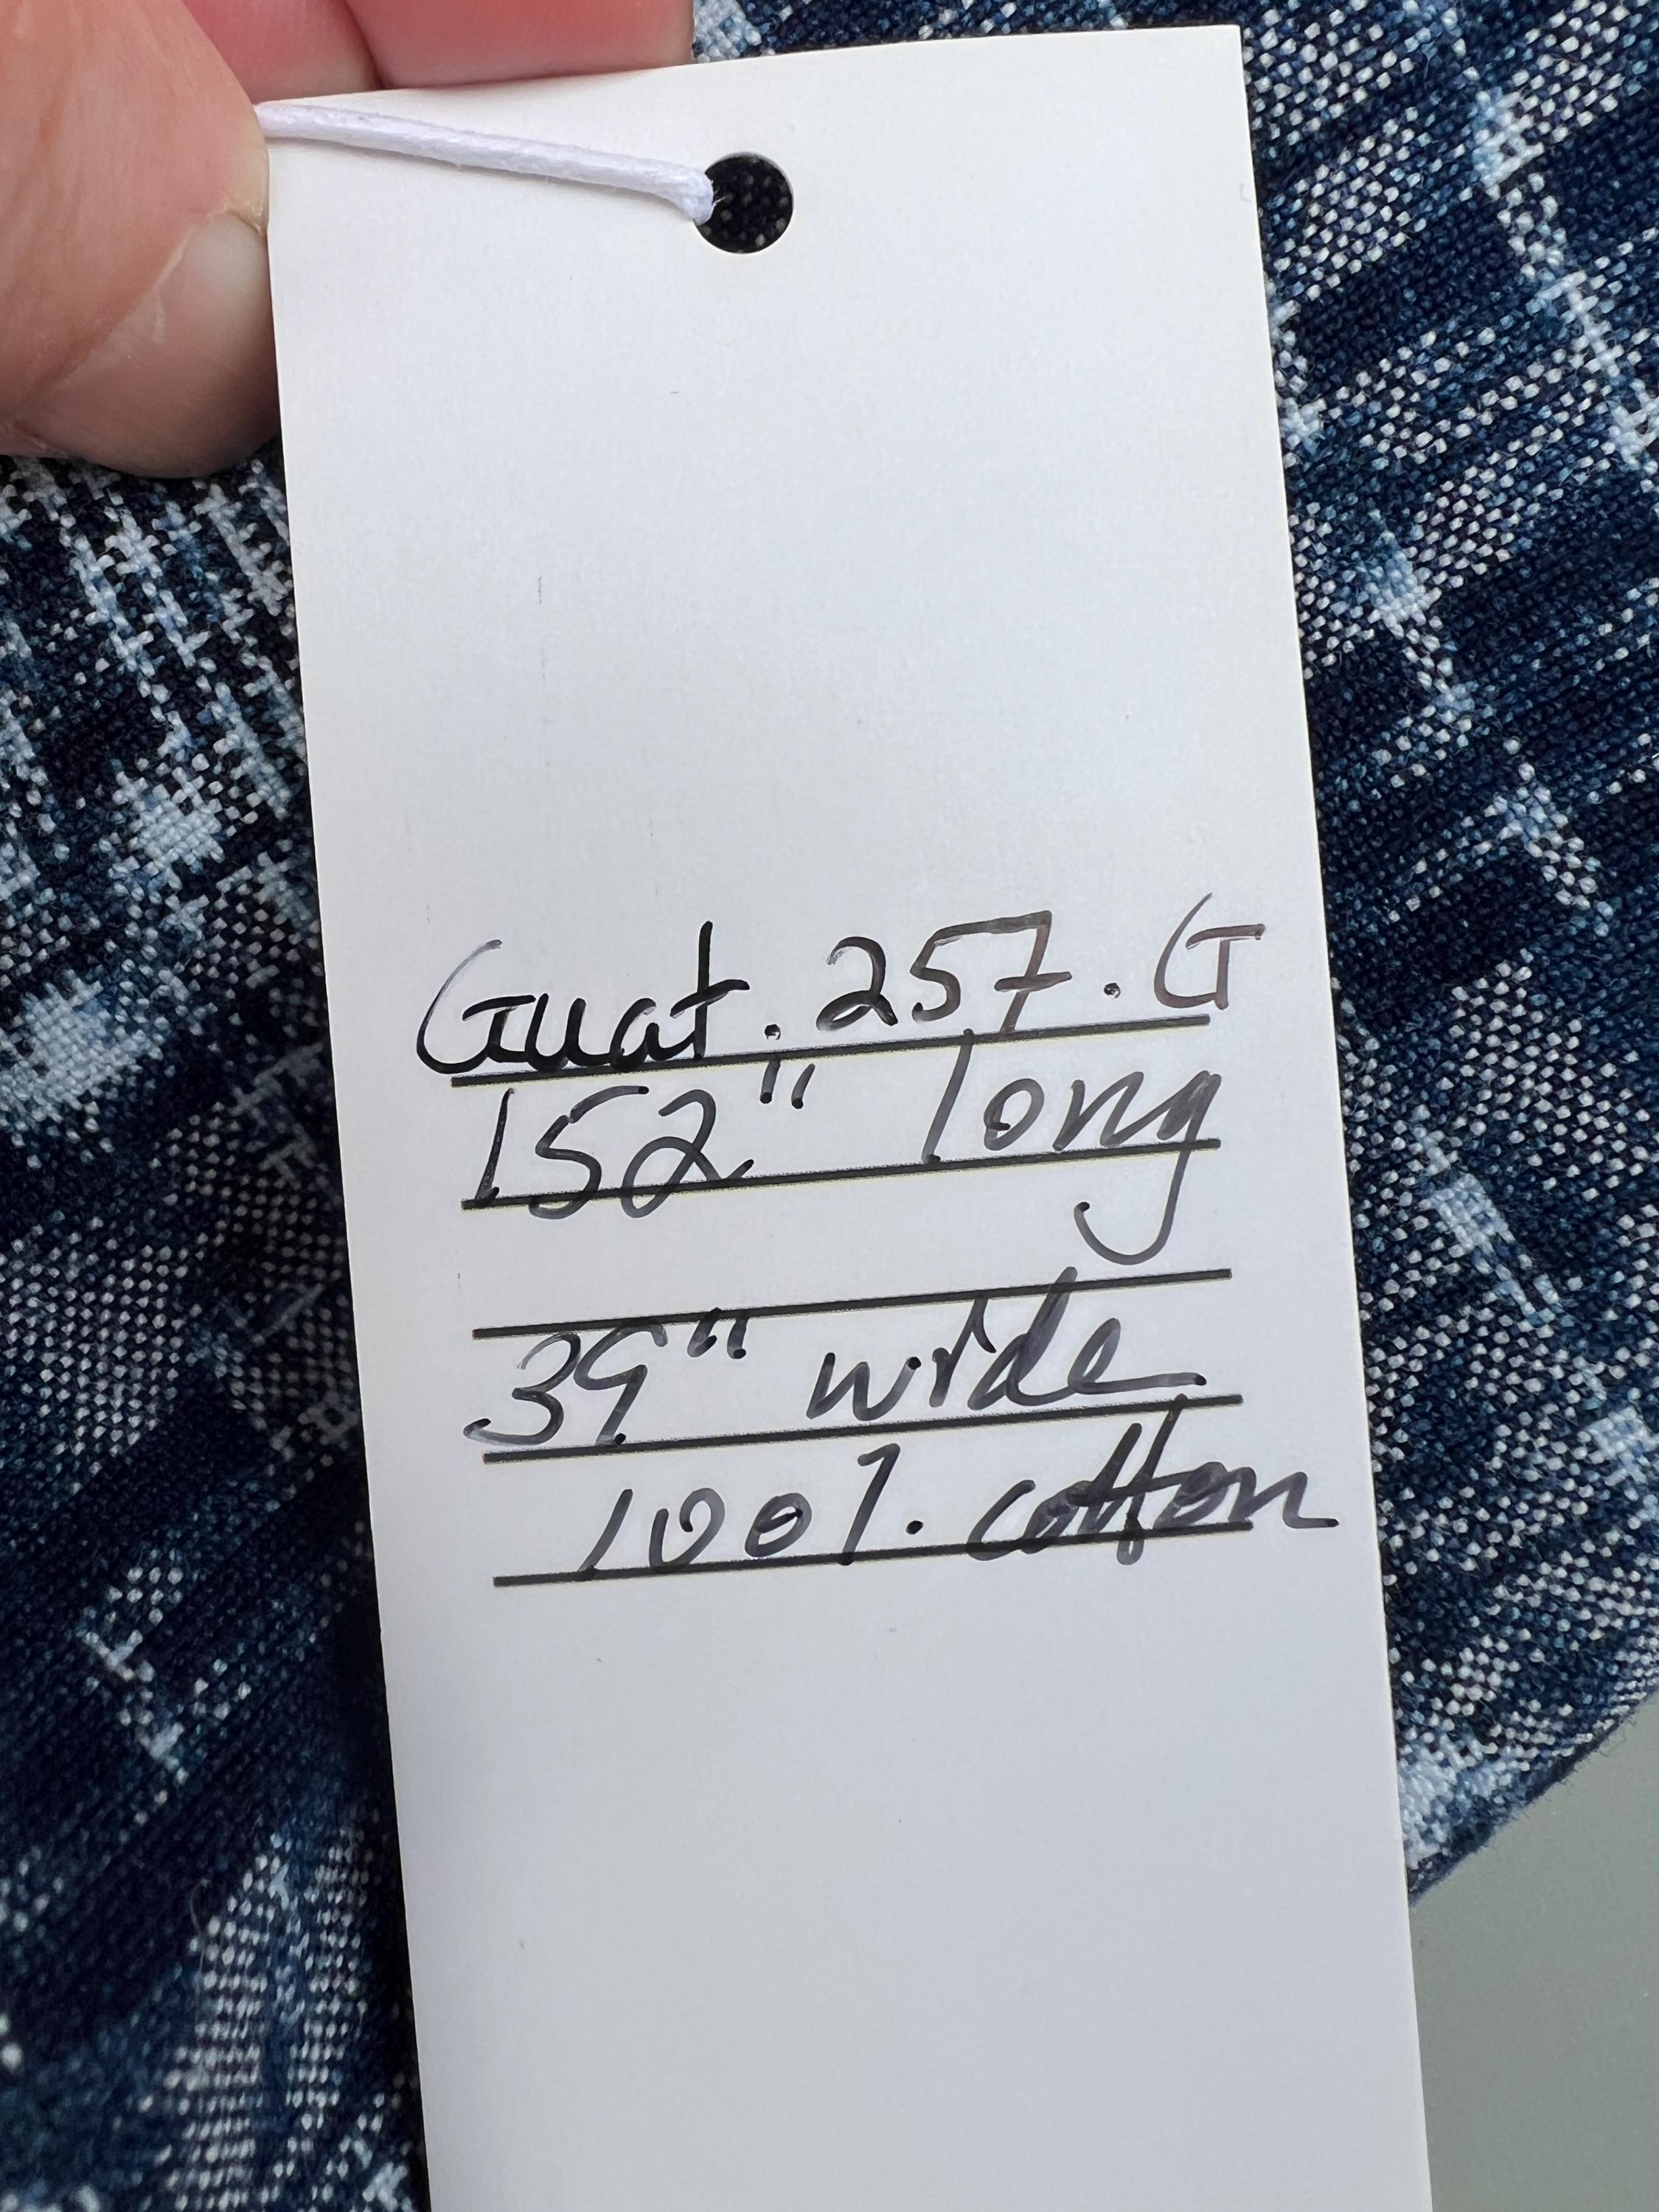 Guat. 257. G
152" long
39" wide
100%. cotton